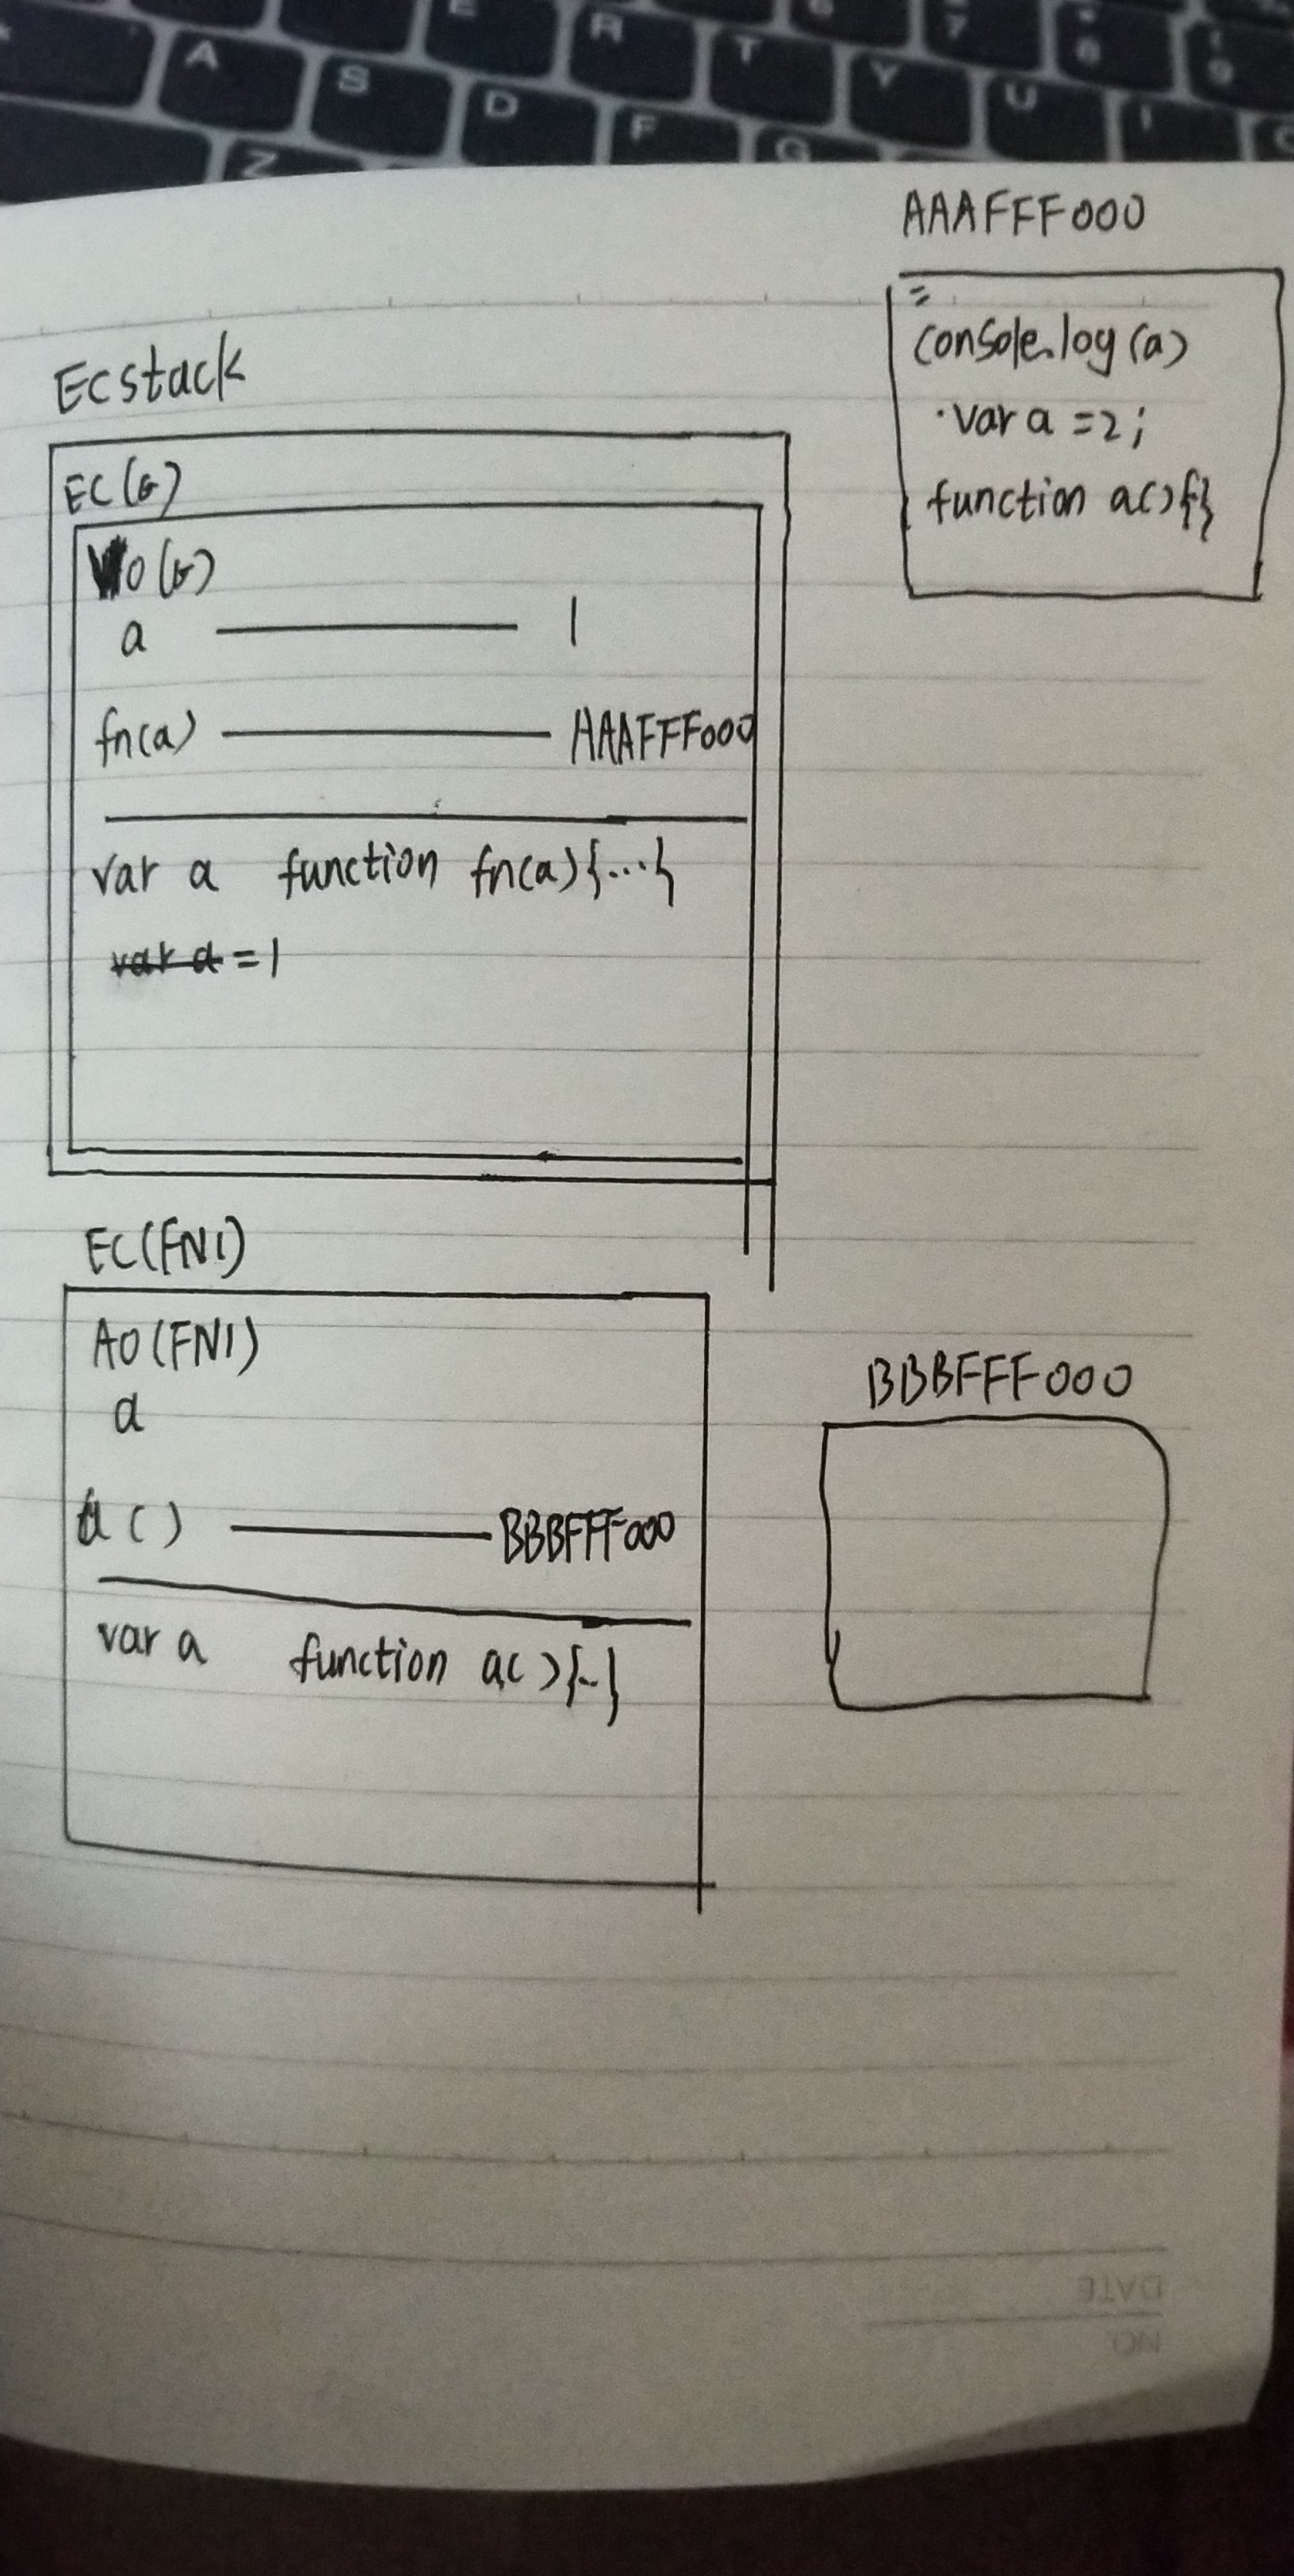 E
R
T
6
7
8
9
A
S
D
F
Y
U
I
Z
G
AAAFFF000
console.log(a)
var a =2;
function a(){}
ECstack
EC(G)
VO(G)
a 1
fn(a) AAAFFF000
var a function fn(a){...}
var a =1
EC(FN1)
AO(FN1)
a
a() BBBFFF000
var a function a(){..}
BBBFFF000
DATE
NO.